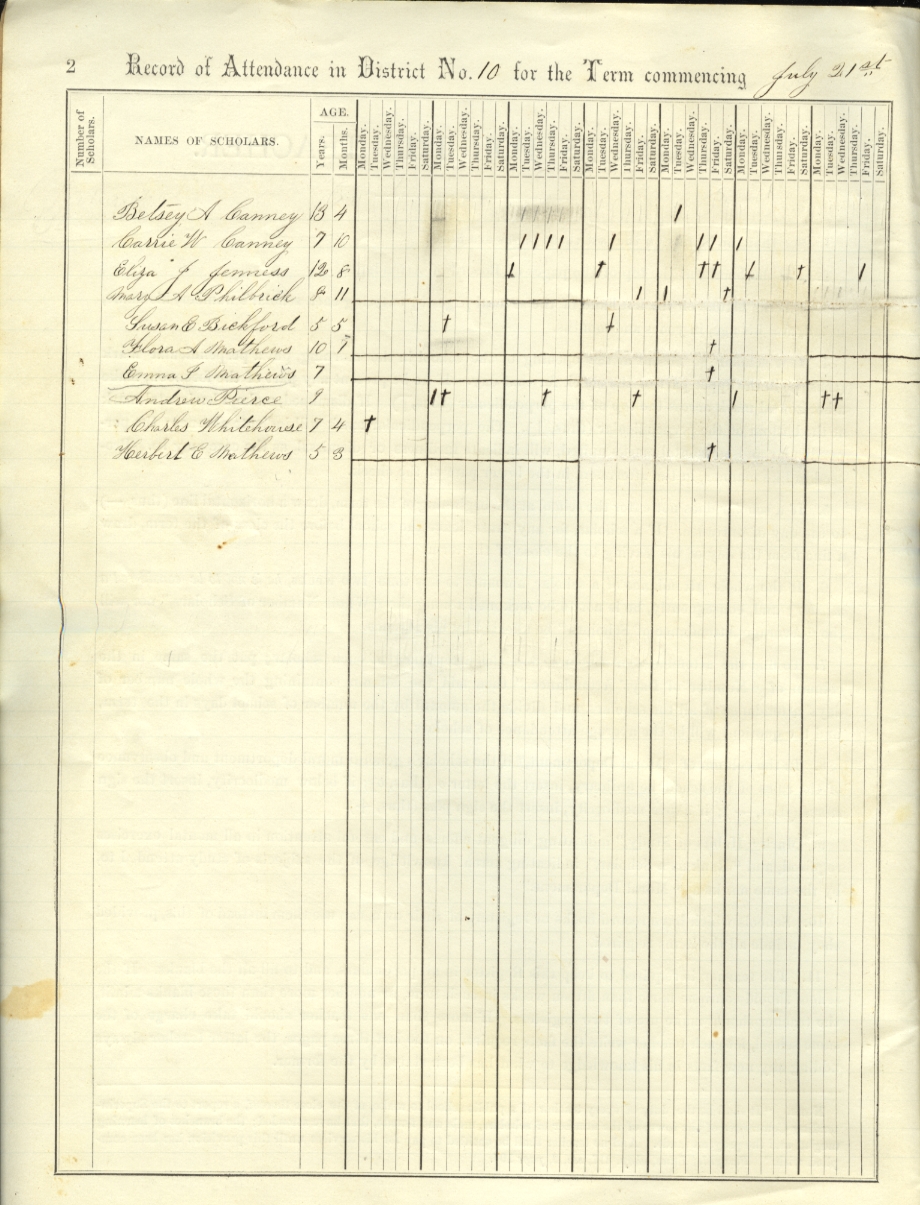 2 Record of Attendance in District No. 10 for the Term commencing July 21st
Number of Scholars. NAMES OF SCHOLARS. AGE. Years. Months. Monday. Tuesday. Wednesday. Thursday. Friday. Saturday. Monday. Tuesday. Wednesday. Thursday. Friday. Saturday. Monday. Tuesday. Wednesday. Thursday. Friday. Saturday. Monday. Tuesday. Wednesday. Thursday. Friday. Saturday. Monday. Tuesday. Wednesday. Thursday. Friday. Saturday. Monday. Tuesday. Wednesday. Thursday. Friday. Saturday. Monday. Tuesday. Wednesday. Thursday. Friday. Saturday.
Betsey A Canney 13 4
Carrie W Canney 7 10
Eliza J Jenness 12 8
Mary A Philbrick 8 11
Susan E Bickford 5 5
Flora A Mathews 10 1
Emma F Mathews 7
Andrew Pierce 9
Charles Whitehouse 7 4
Herbert E Mathews 5 3